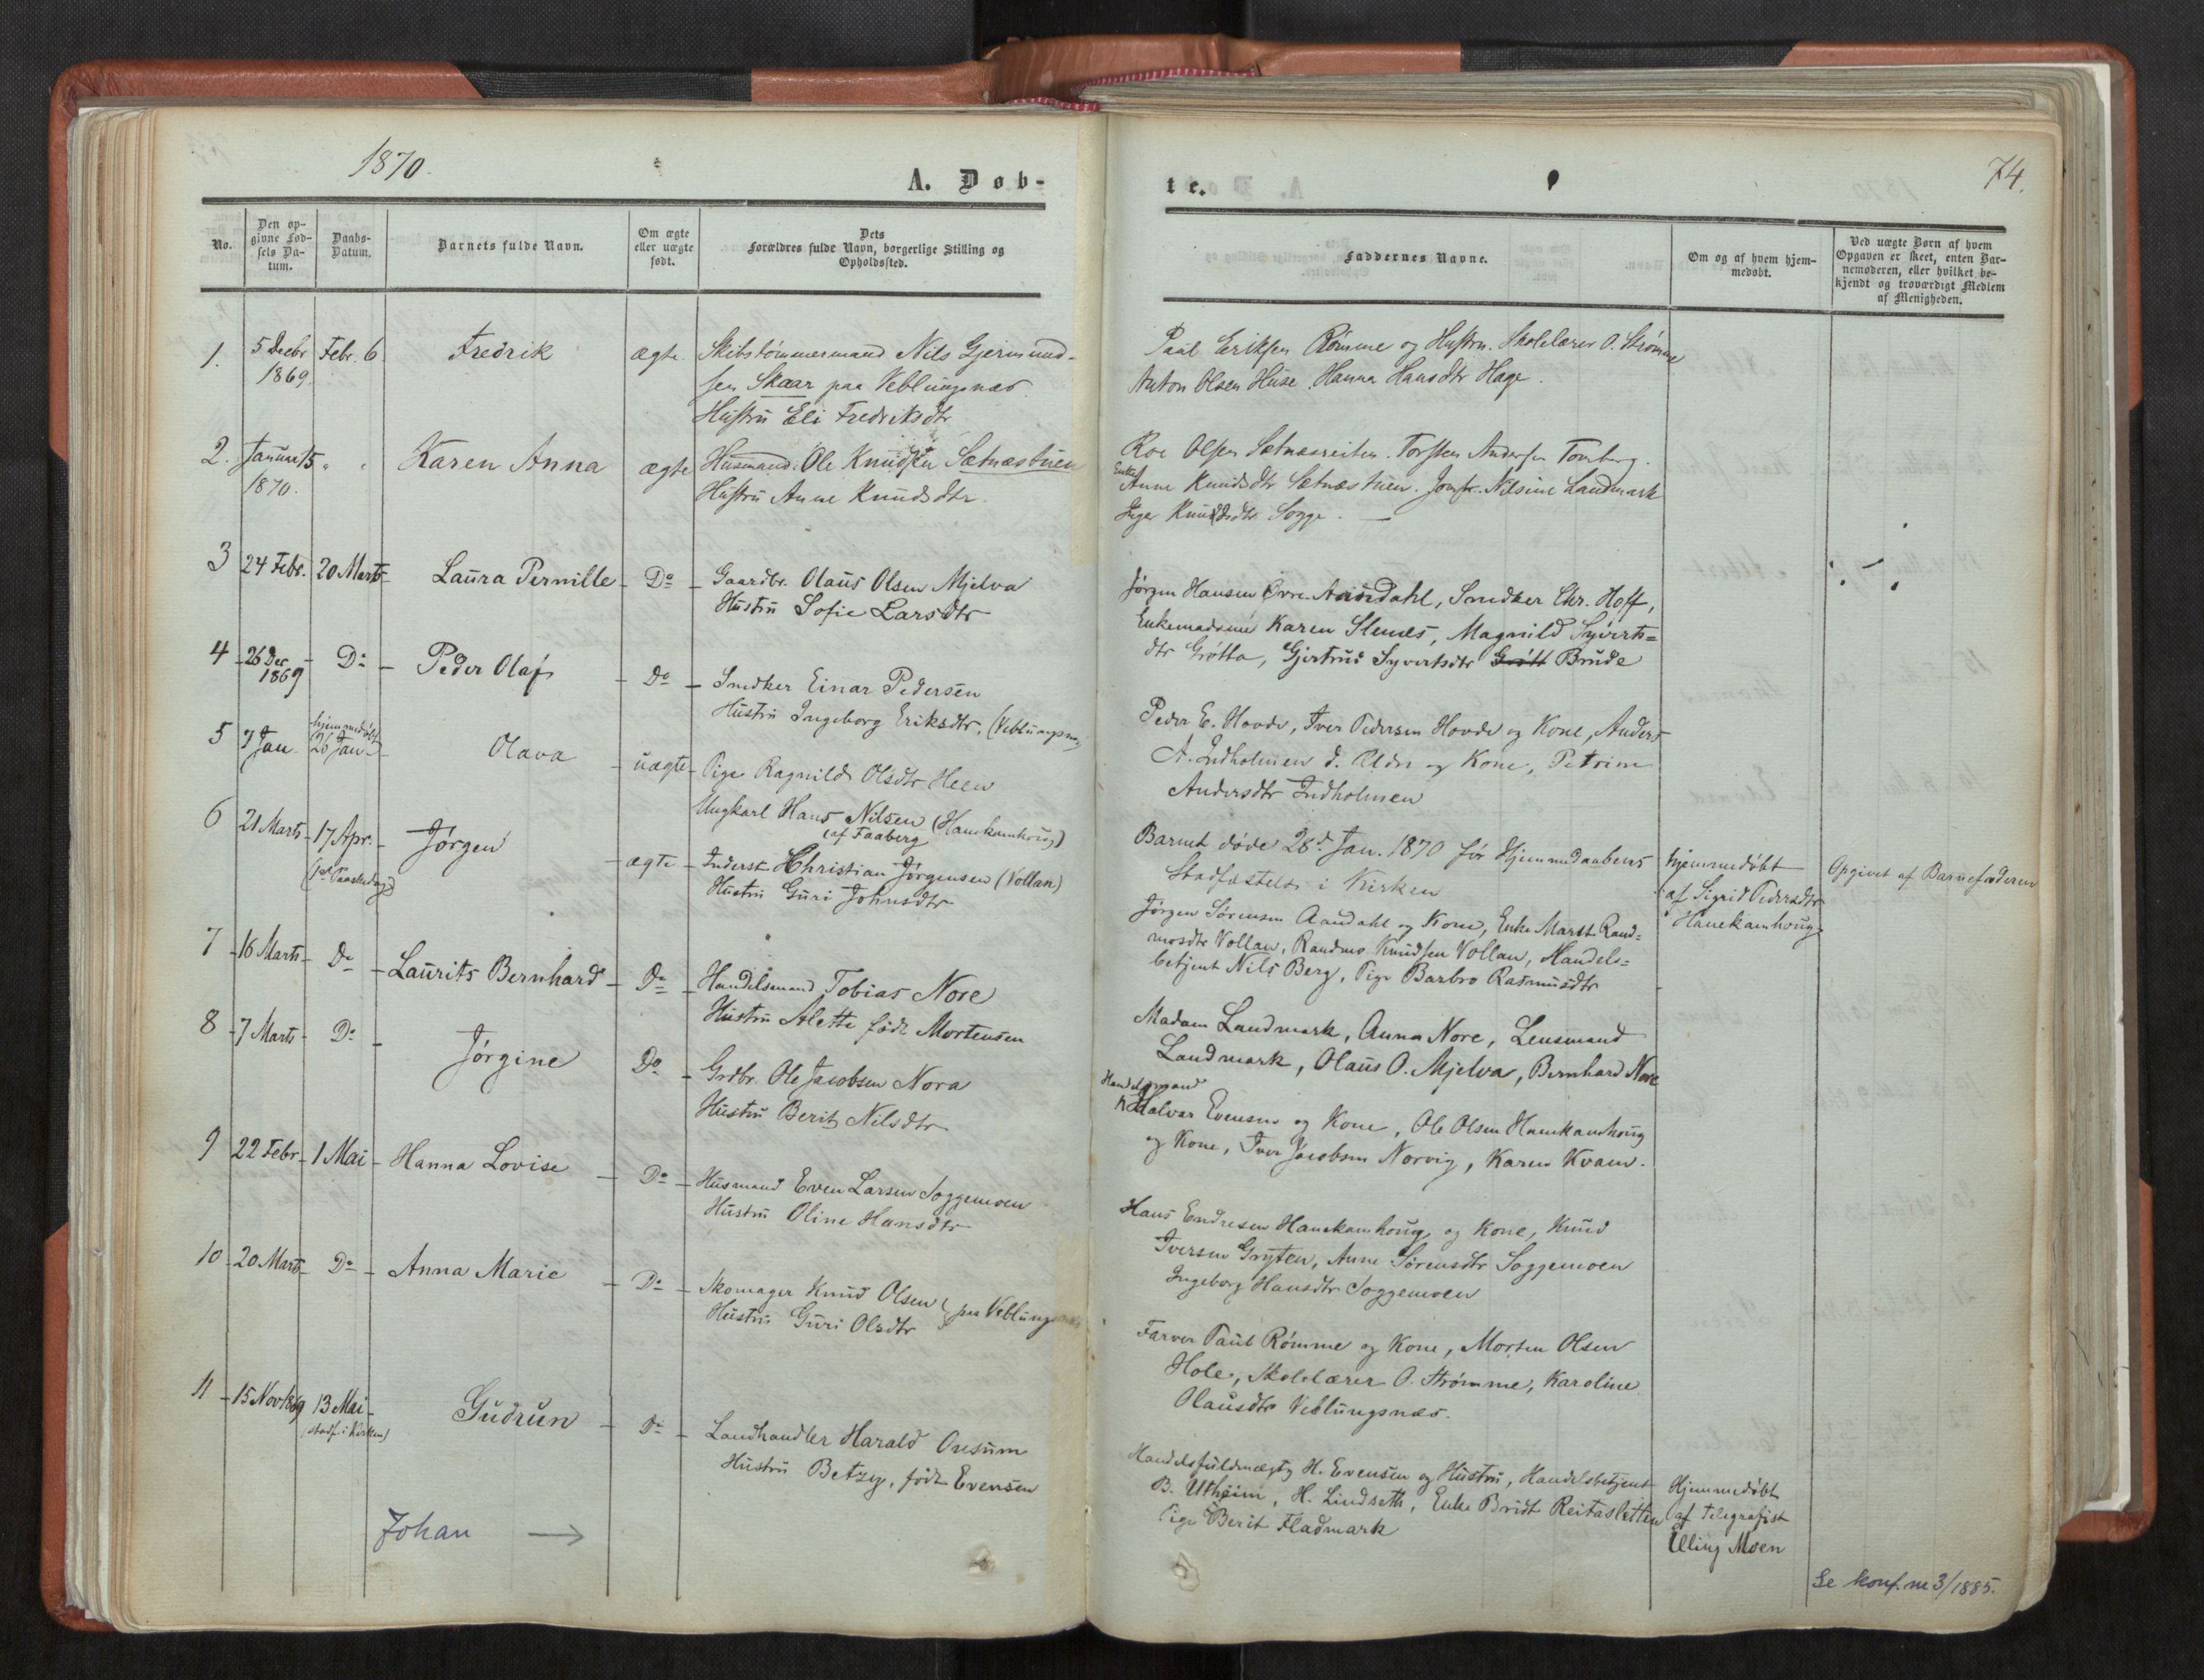 1870.
A. Døb-
No.
Den op-
givne Fød-
sels Da-
tum.
Daabs-
Datum.
Barnets fulde Navn.
Om ægte
eller uægte
født.
Dets
Forældres fulde Navn, borgerlige Stilling og
Opholdssted.
1.
5 Decbr
1869.
Febr. 6
Fredrik
ægte
Skibstømmermand Nils Gjermund-
sen Skaar paa Veblungsnæs
Hustru Eli Fredriksdtr
2.
Januar 15
1870.
" "
Karen Anna
ægte
Husmand Ole Knudsen Sætnæstuen
Hustru Anne Knudsdtr.
3
24 Febr.
20 Marts
Laura Pernille
Do
Gaardbr. Olaus Olsen Mjelva
Hustru Sofie Larsdtr
4
26 Dec
1869
Do
Peder Olaf
Do
Snedker Einar Pedersen
Hustru Ingeborg Eriksdtr. (Veblungsnæs)
5
7 Jan.
hjemmedøbt
26 Jan
Olava
uægte
Pige Ragnild Olsdtr Heen
Ungkarl Hans Nilsen (Hanekamhoug)
(af Faaberg
6
21 Marts
17 Apr.
(1ste Paaskedag)
Jørgen
ægte
Inderst Christian Jørgensen (Vollan)
Hustru Guri Johnsdtr
7
16 Marts
Do
Laurits Bernhard
Do
Handelsmand Tobias Nore
Hustru Alette født Mortensen
8
7 Marts
Do
Jørgine
Do
Grdbr. Ole Jacobsen Nora
Hustru Berit Nilsdtr
9
22 Febr
1 Mai
Hanna Lovise
Do
Husmand Even Larsen Soggemoen
Hustru Oline Hansdtr
10
20 Marts
Do
Anna Marie
Do
Skomager Knud Olsen } paa Veblungsnæs
Hustru Guri Olsdtr
11
15 Nov 1869
13 Mai
(stadf. i Kirken)
Gudrun
Do
Landhandler Harald Onsum
Hustru Betzy, født Evensen
Johan →
te.
74.
Faddernes Navne.
Om og af hvem hjem-
medøbt.
Ved uægte Børn af hvem
Opgaven er skeet, enten Bar-
nemoderen, eller hvilket be-
kjendt og troværdigt Medlem
af Menigheden.
Paul Eriksen Rømme og Hustru. Skolelærer O. Strømme
Anton Olsen Huse. Hanna Hansdtr Hage.
Roe Olsen Sætnæsreiten. Torsten Andersen Tomberg.
Enke Anne Knudsdtr Sætnæstuen. Jomfr. Nilsine Landmark
Inger Knudsdtr Sogge. —
Jørgen Hansen Øvre-Aandahl, Snedker Chr. Hoff,
Enkemadame Karen Stenes, Magnild Syverts=
dtr Grøtta, Gjertrud Syvertsdtr Grøtt Brude
Peder E. Hovde, Iver Pedersen Hovde og Kone, Anders
A. Indholmen d. Ældre og Kone, Petrine
Andersdtr Indholmen
Barnet døde 28de Jan. 1870 før Hjemmedaabens
Stadfæstelse i Kirken
hjemmedøbt
af Sigrid Pedersdtr
Hanekamhoug
Opgivet af Barnefaderen
Jørgen Sørensen Aandahl og Kone, Enke Marit Rand=
mosdtr Vollan, Randmo Knudsen Vollan, Handels=
betjent Nils Berg, Pige Barbro Rasmusdtr
Madam Landmark, Anna Nore, Lensmand
Landmark, Olaus O. Mjelva, Bernhard Nore
Handelsmand
Halvar Evensen og Kone, Ole Olsen Hanekamhoug
og Kone, Iver Jacobsen Norvig, Karen Kvam.
Hans Endresen Hanekamhoug og Kone, Knud
Iversen Gryten, Anne Sørensdtr Soggemoen
Ingeborg Hansdtr Soggemoen
Farver Paul Rømme og Kone, Morten Olsen
Hole, Skolelærer O. Strømme, Karoline
Olausdtr Veblungsnæs.
Handelsfuldmægtig H. Evensen og Hustru, Handelsbetjent
B. Utheim, H. Lindseth, Enke Bridt Reitasletten
Pige Berit Fladmark
Hjemmedøbt
af Telegrafist
Elling Moen
Se konf. nr 3/1885.